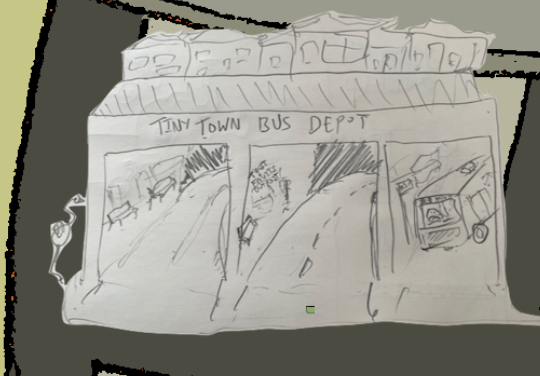 TINY TOWN BUS DEPOT